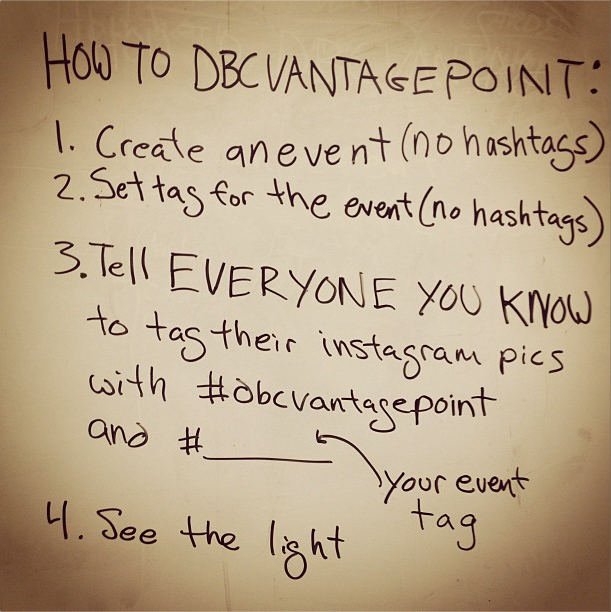 HOW TO DBCVANTAGEPOINT:
1. Create an event (no hashtags)
2. Set tag for the event (no hashtags)
3. Tell EVERYONE YOU KNOW
to tag their instagram pics
with #dbcvantagepoint
and #________
your event
tag
4. See the light